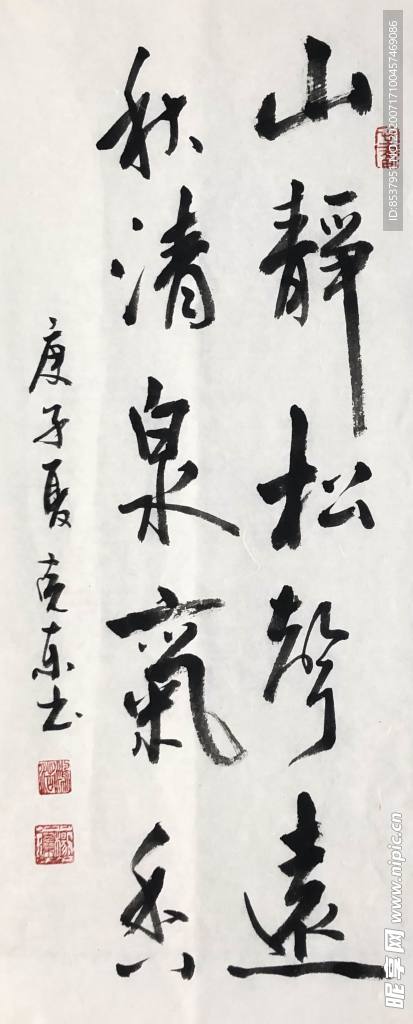 山靜松聲遠
秋清泉氣香
庚子夏克東书
ID:853795 NO:20200717100457469086
昵享网 www.nipic.cn